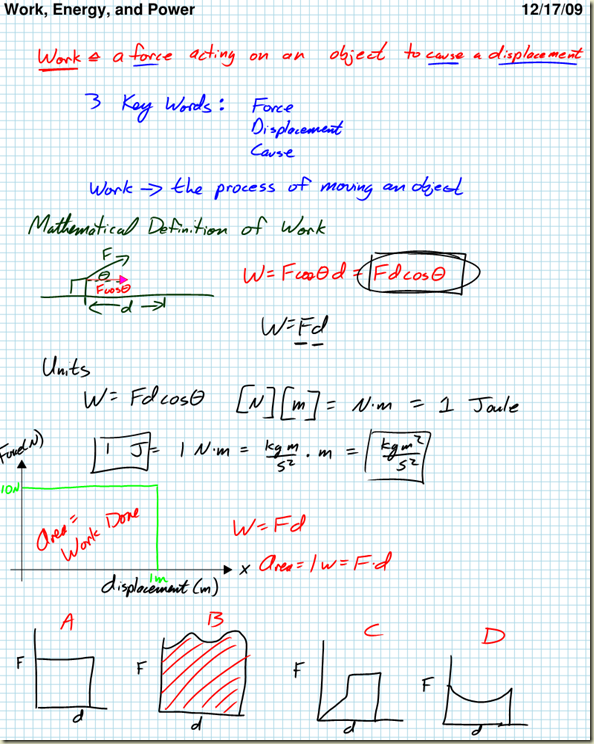 Work, Energy, and Power 12/17/09
Work = a force acting on an object to cause a displacement
3 Key Words: Force
Displacement
Cause
Work → the process of moving an object
Mathematical Definition of Work
F
θ
Fcosθ
d
W = Fcosθ d = Fdcosθ
W = Fd
Units
W = Fdcosθ [N][m] = N·m = 1 Joule
1 J = 1 N·m = kg m/s² · m = kg m²/s²
Force (N)
10N
area = Work Done
W = Fd
x area = lw = F·d
1m
displacement (m)
A B C D
F F F F
d d d d